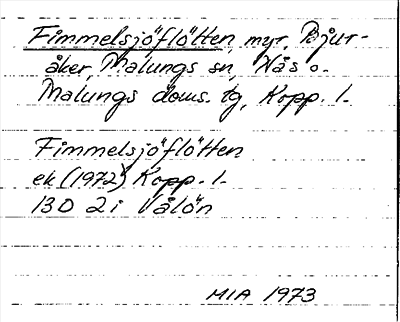 Fimmelsjöflötten, myr, Bjur-
åker, Malungs sn, Nås o.
Malungs doms. tg, Kopp. l.
Fimmelsjöflötten
ek (1972) Kopp. l.
13D 2i Vålön
MIA 1973